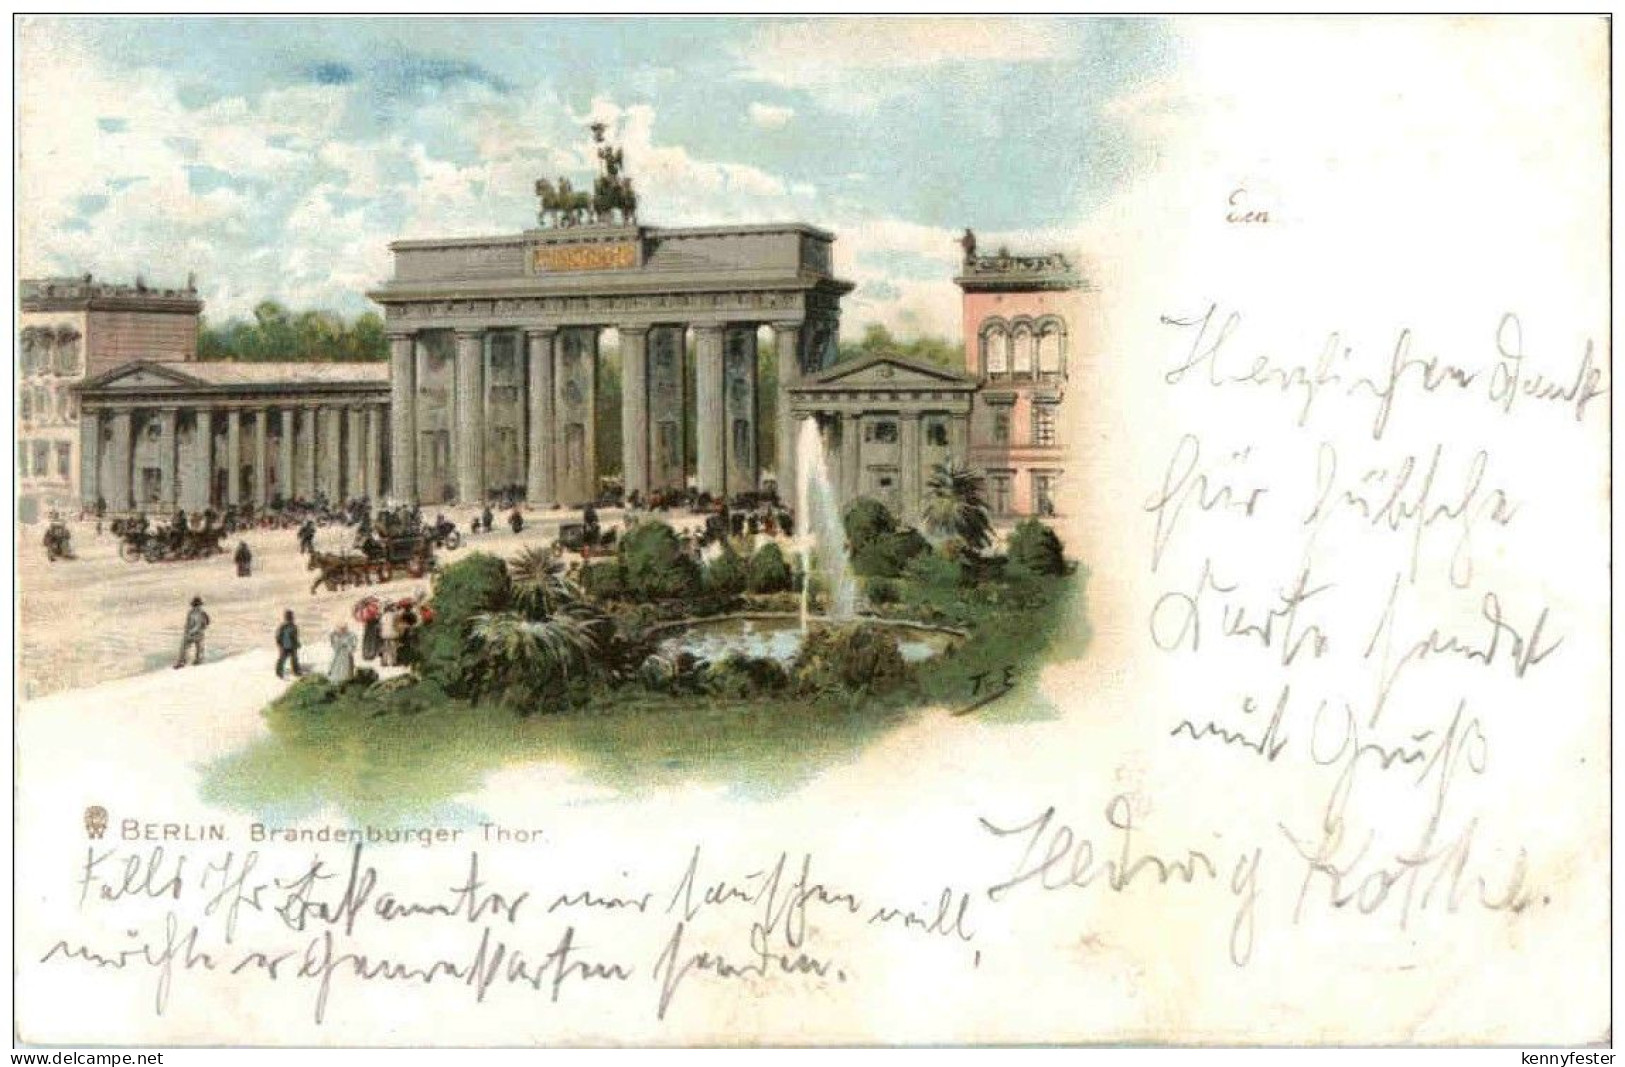 Ein
Herzlichen Dank
für hübsche
Karte sendet
mit Gruß
Hedwig Kothe.
BERLIN. Brandenburger Thor.
Falls Ihr Bekannter mir tauschen will,
möchte er Genrekarten senden.
T. E
www.delcampe.net
kennyfester